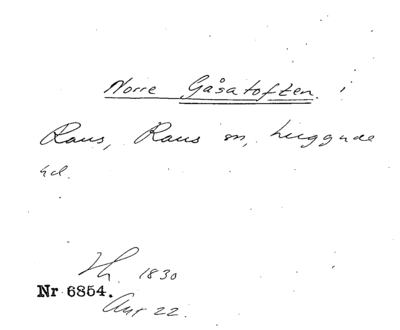 Norre Gåsatoften i
Raus, Raus sn, Luggude
hd.
Lh. 1830
Nr 6854.
Akt 22.